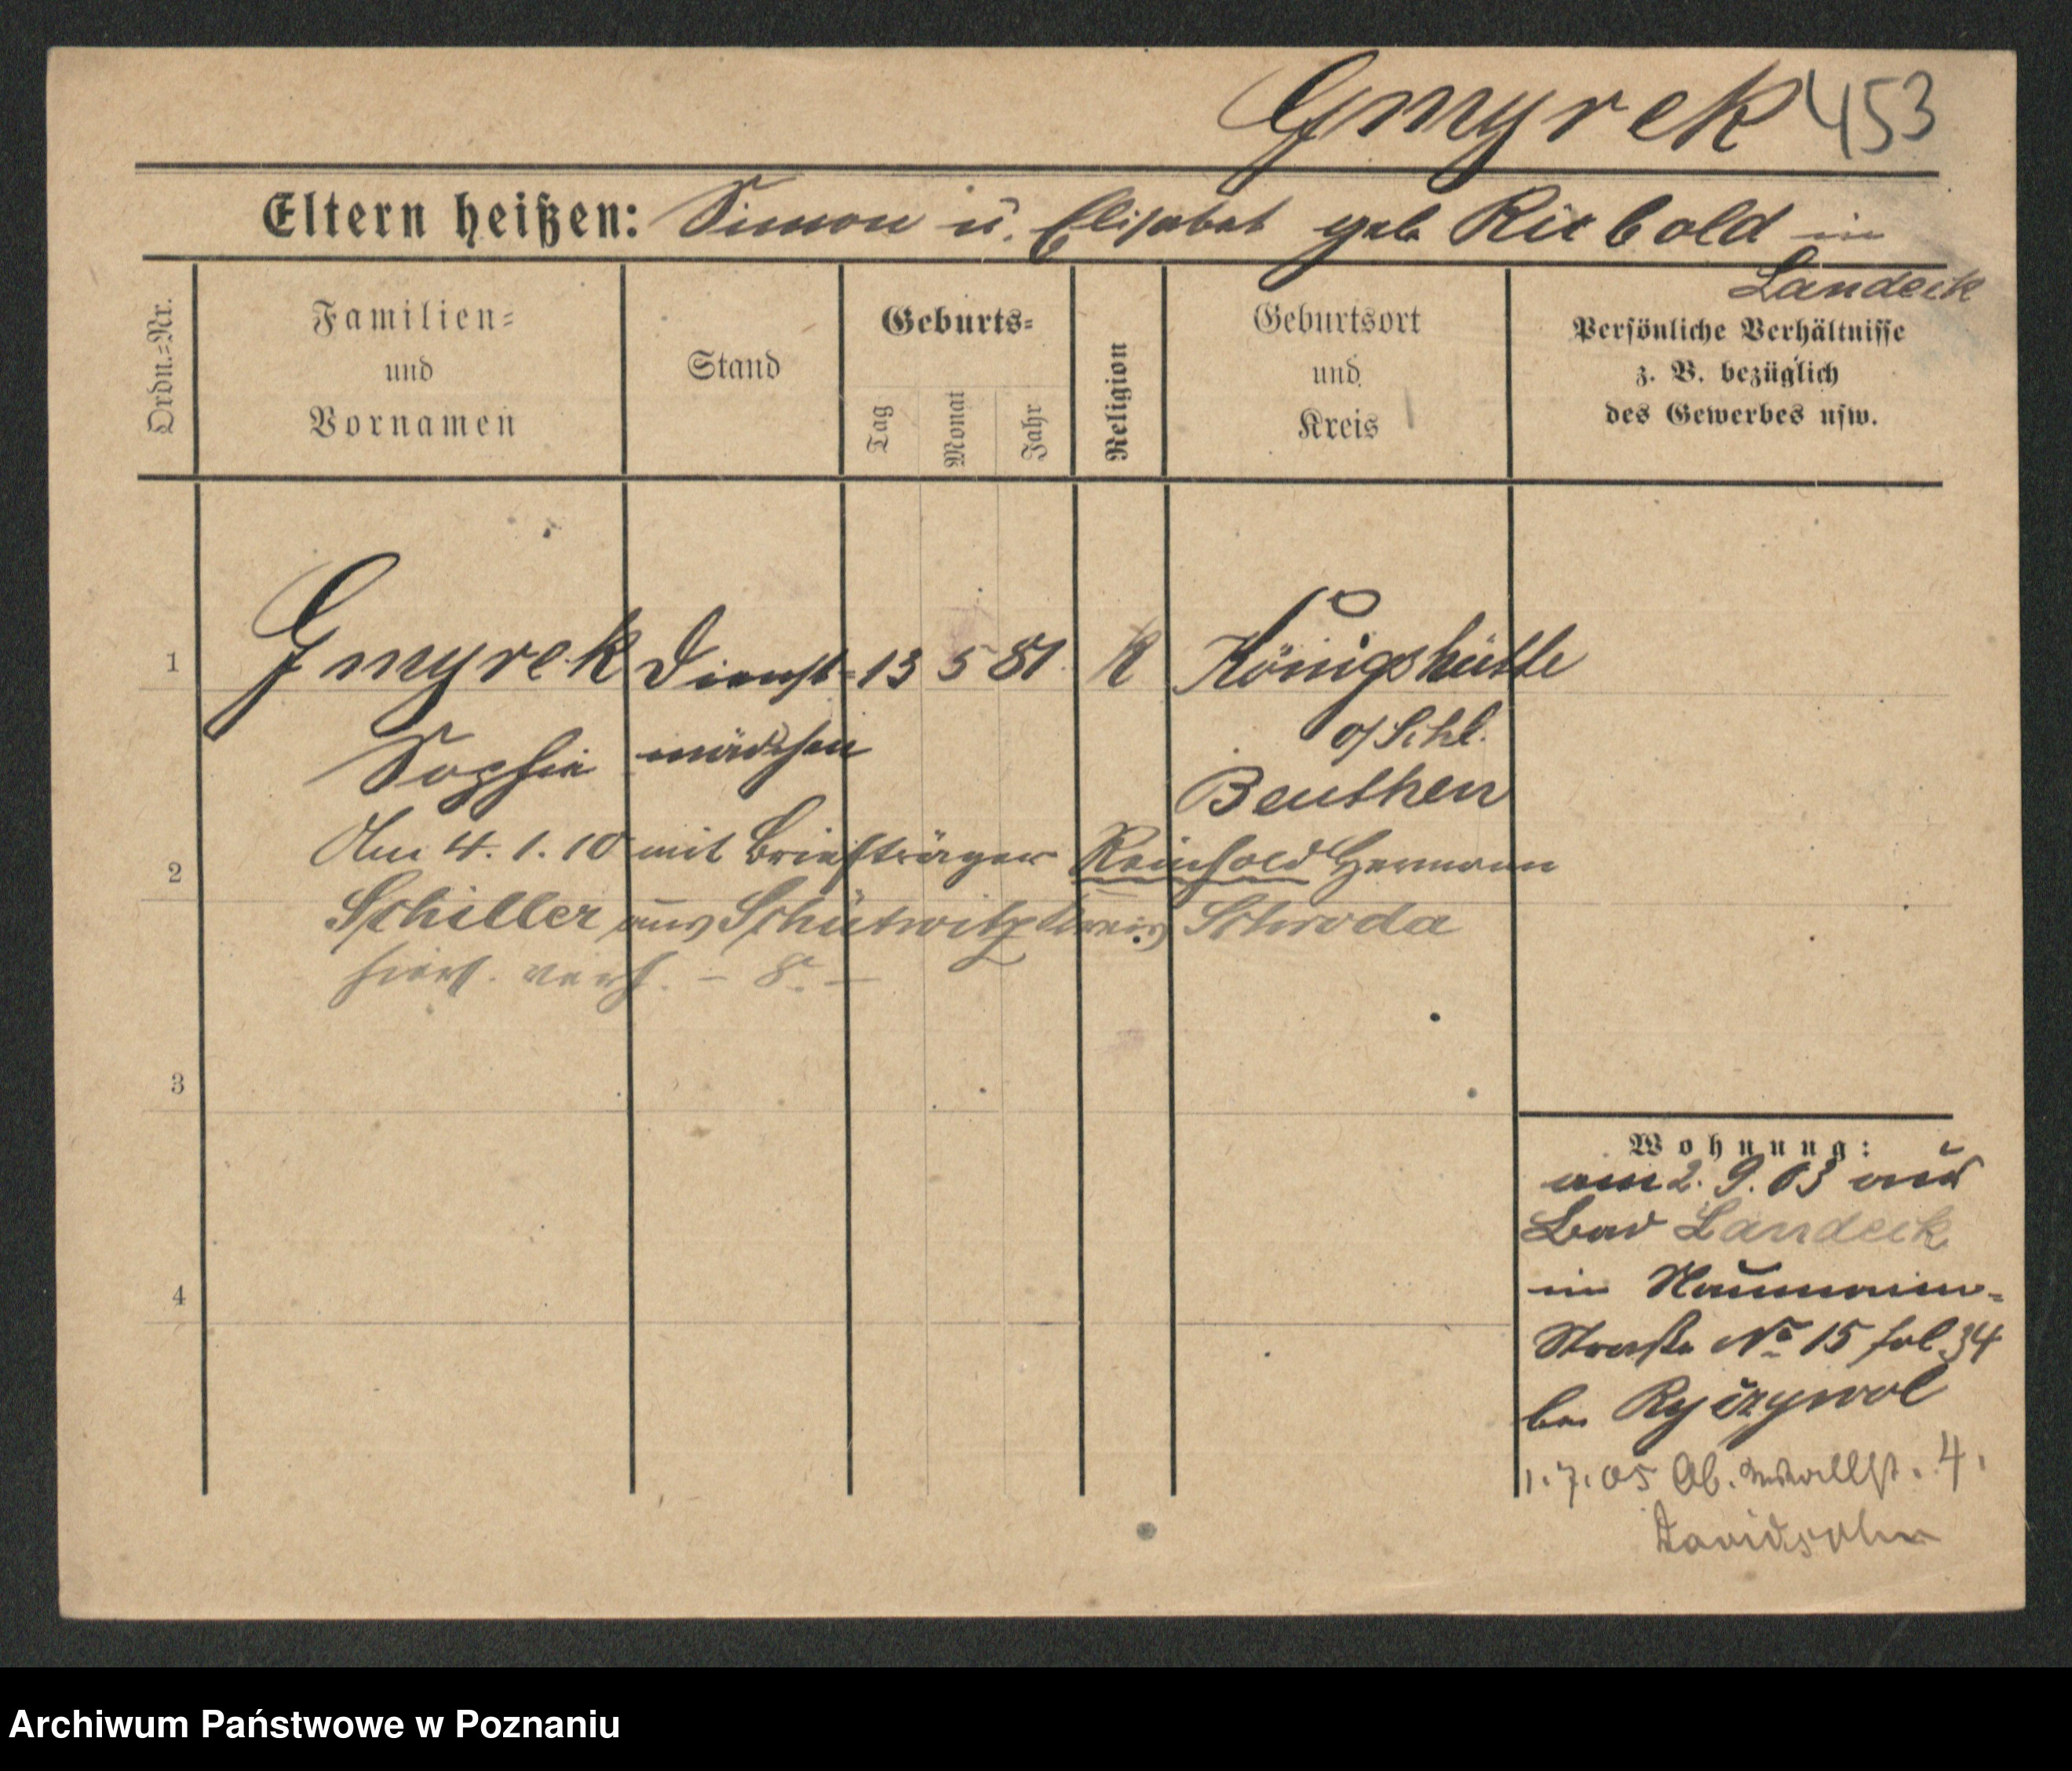 Gmyrek 453
Eltern heißen: Simon u. Elisabet geb. Riebold in
Landeck
Ordn.=Nr.
Familien=
und
Vornamen
Stand
Geburts=
Tag
Monat
Jahr
Religion
Geburtsort
und
Kreis
Persönliche Verhältnisse
z. B. bezüglich
des Gewerbes usw.
1 Gmyrek Dienst= 13 5 81 K Königshütte
o/Schl.
Sophie mädchen
Beuthen
2 Am 4.1.10 mit Briefträger Reinhold Hermann
Schiller aus Kreis Schroda
hier verh. – 8. –
3
4
Wohnung:
am 2.9.03 aus
Bad Landeck
in Naumann=
Straße No 15 fol. 34
bei Ryczywol
1.7.05 Ab. 4.
Davidsohn
Archiwum Państwowe w Poznaniu